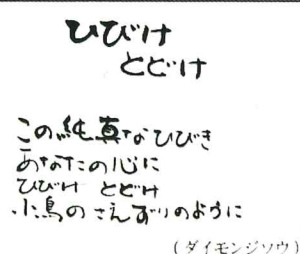 ひびけ
とどけ
この純真なひびき
あなたの心に
ひびけ とどけ
小鳥のさえずりのように
(ダイモンジソウ)